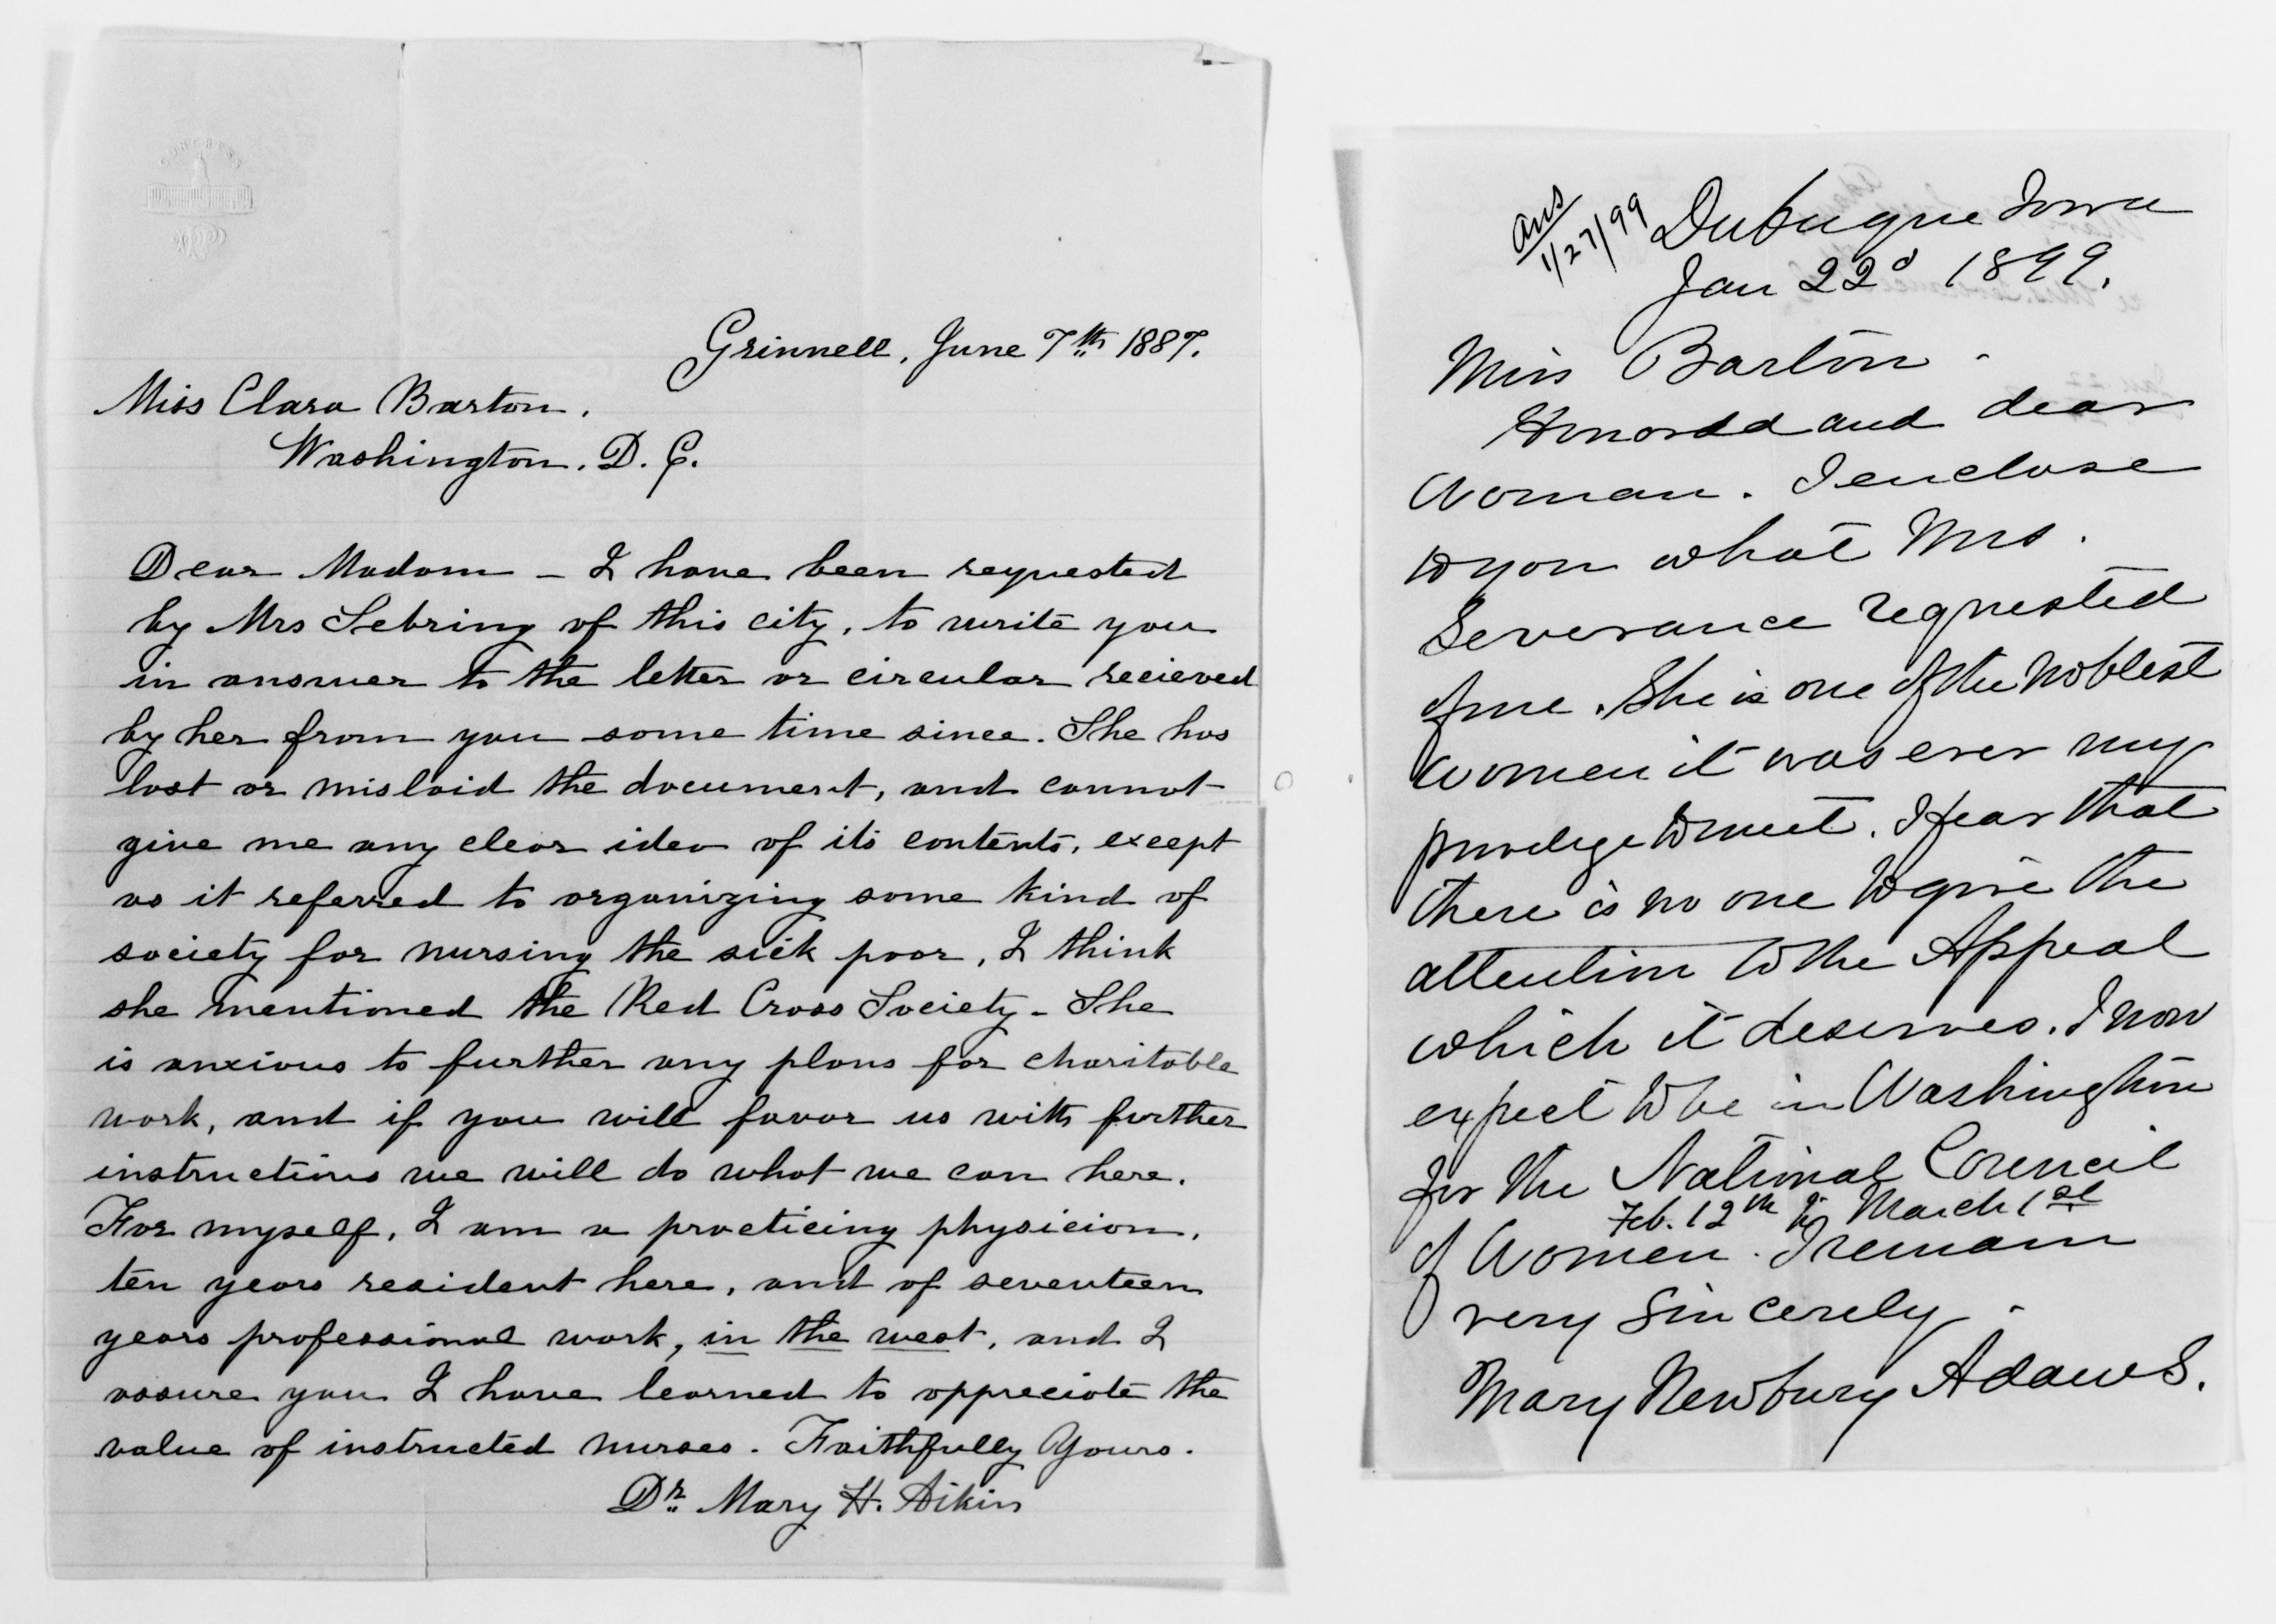 CONGRESS
Grinnell, June 7th 1887.
Miss Clara Barton,
Washington. D. C.
Dear Madam – I have been requested
by Mrs Sebring of this city, to write you
in answer to the letter or circular recieved
by her from you some time since. She has
lost or mislaid the document, and cannot
give me any clear idea of its contents, except
as it referred to organizing some kind of
society for nursing the sick poor, I think
she mentioned the Red Cross Society – She
is anxious to further any plans for charitable
work, and if you will favor us with further
instructions we will do what we can here.
For myself, I am a practicing physician,
ten years resident here, and of seventeen
years professional work, in the west, and I
assure you I have learned to appreciate the
value of instructed nurses. Faithfully Yours.
Dr. Mary H. Aikin
Ans
1/27/99
Dubuque Iowa
Jan 22d 1899.
Miss Barton –
Honored and dear
Woman. I enclose
to you what Mrs.
Severance requested
of me. She is one of the noblest
women it was ever my
privilege to meet. I fear that
there is no one to give the
attention to the Appeal
which it deserves. I now
expect to be in Washington
for the National Council
Feb. 12th to March 1st
of Women. I remain
very sincerely –
Mary Newbury Adams.